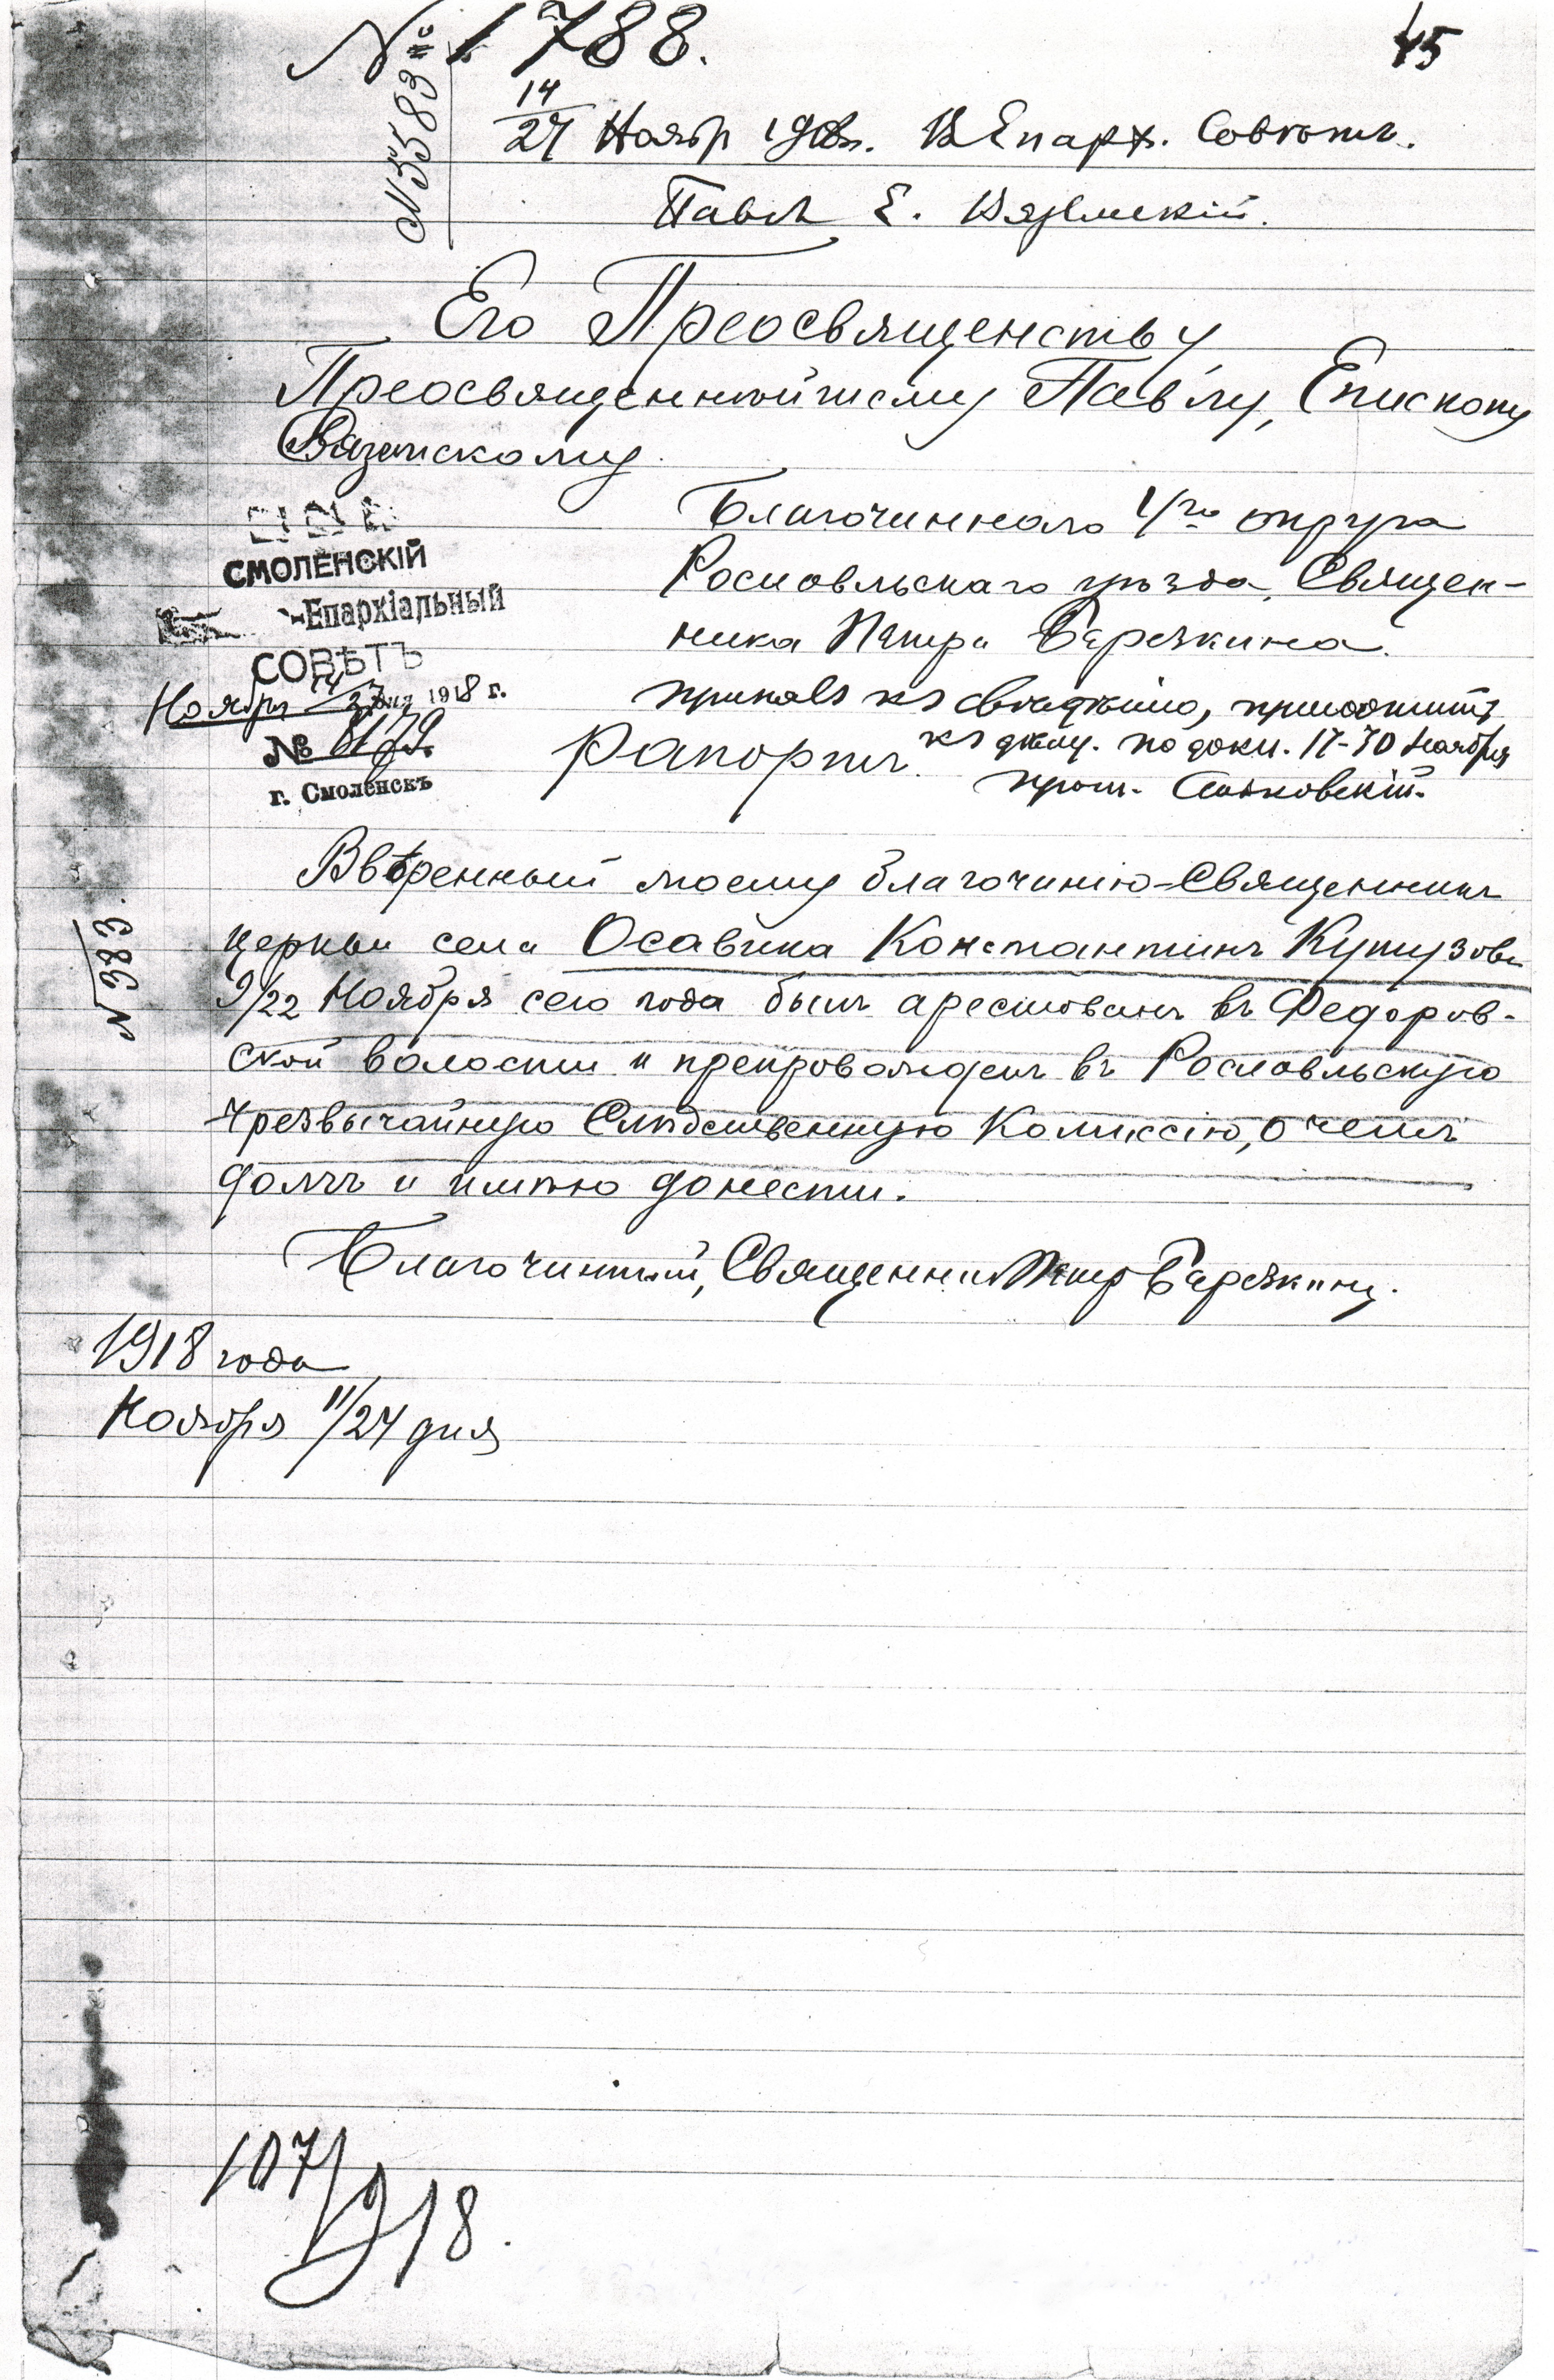 № 1788.
45
№ 5583
14/27 Ноябр 1918 г. Въ Епарх. Совѣтъ.
Павелъ Е. Вяземскій.
Его Преосвященству
Преосвященнѣйшему Павлу, Епископу
Вяземскому
Благочиннаго 4го округа
Рославльскаго уѣзда, Священ-
ника Петра Березкина.
СМОЛЕНСКІЙ
Епархіальный
СОВѢТЪ
Ноября 14/27 дня 1918 г.
№
г. Смоленскъ
Рапортъ.
принять къ свѣдѣнію, пріобщить
къ дѣлу. по докл. 17-30 Ноября
прот.
Ввѣренный моему благочинію-Священникъ
церкви села Осавика Константинъ Кутузовъ
9/22 Ноября сего года былъ арестованъ въ Федоров-
ской волости и препровожденъ въ Рославльскую
Чрезвычайную Слѣдственную Комиссію, о чемъ
долгъ и имѣю донести.
Благочинный, Священникъ Петръ Березкинъ.
№ 383.
1918 года
Ноября 11/24 дня
107/918.